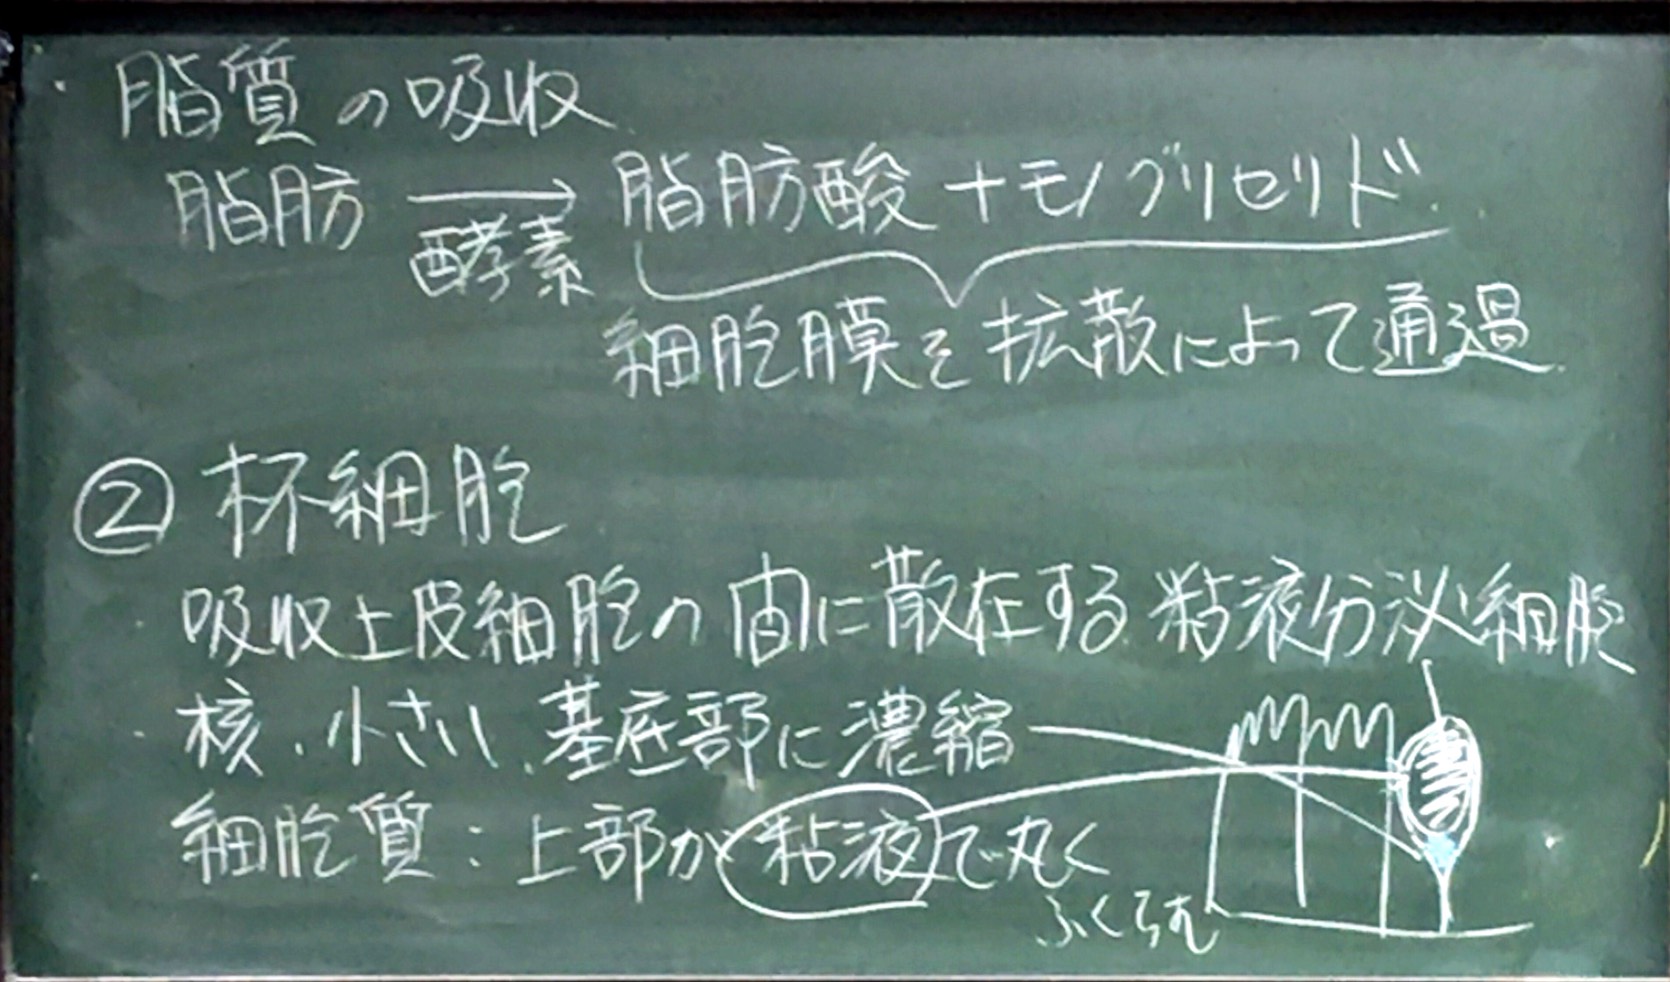 ・脂質の吸収
脂肪 → 脂肪酸+モノグリセリド
酵素
細胞膜を拡散によって通過
② 杯細胞
吸収上皮細胞の間に散在する粘液分泌細胞
核.小さい、基底部に濃縮
細胞質:上部が粘液で丸く
ふくらむ